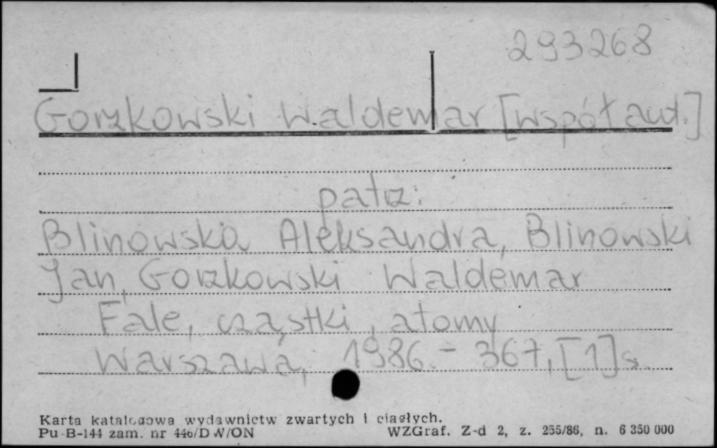 293268
Gorzkowski Waldemar [współaut.]
patrz:
Blinowska Aleksandra, Blinowski
Jan, Gorzkowski Waldemar
Fale, cząstki, atomy
Warszawa, 1986. - 367, [1] s.
Karta katalogowa wydawnictw zwartych i ciągłych.
Pu-B-144 zam. nr 446/D W/ON WZGraf. Z-d 2, z. 255/86, n. 6 350 000